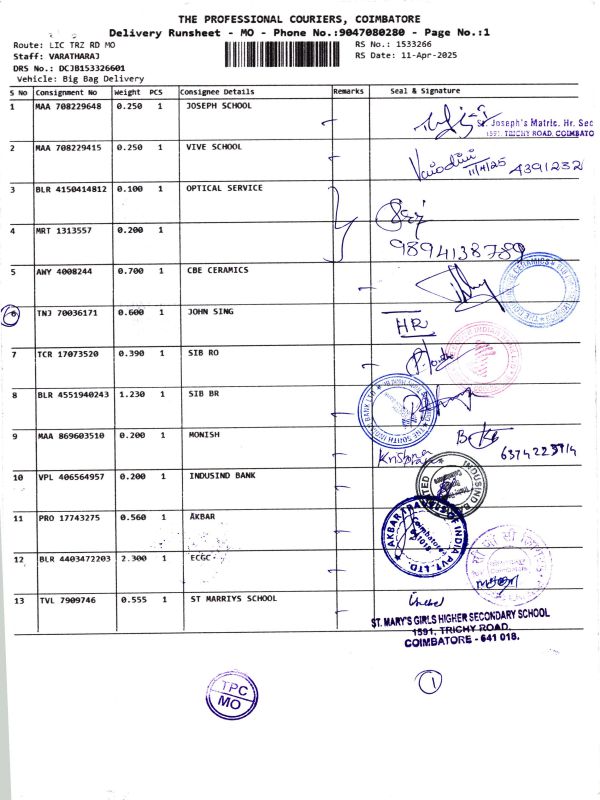 THE PROFESSIONAL COURIERS, COIMBATORE
Delivery Runsheet - MO - Phone No.:9047080280 - Page No.:1
Route: LIC TRZ RD MO
Staff: VARATHARAJ
DRS No.: DCJB153326601
Vehicle: Big Bag Delivery
RS No.: 1533266
RS Date: 11-Apr-2025
S No Consignment No Weight PCS Consignee Details Remarks Seal & Signature
1 MAA 708229648 0.250 1 JOSEPH SCHOOL
St. Joseph's Matric. Hr. Sec
1591, TRICHY ROAD, COIMBATO
2 MAA 708229415 0.250 1 VIVE SCHOOL
11/4/25 4391232
3 BLR 4150414812 0.100 1 OPTICAL SERVICE
4 MRT 1313557 0.200 1
9894138789
5 AWY 4008244 0.700 1 CBE CERAMICS
6 TNJ 70036171 0.600 1 JOHN SING
HR
7 TCR 17073520 0.390 1 SIB RO
8 BLR 4551940243 1.230 1 SIB BR
THE SOUTH INDIAN BANK LTD
9 MAA 869603510 0.200 1 MONISH
6374223914
10 VPL 406564957 0.200 1 INDUSIND BANK
11 PRO 17743275 0.560 1 AKBAR
AKBAR TRAVELS OF INDIA PVT. LTD.
Coimbatore
641018
12 BLR 4403472203 2.300 1 ECGC
13 TVL 7909746 0.555 1 ST MARRIYS SCHOOL
ST. MARY'S GIRLS HIGHER SECONDARY SCHOOL
1591, TRICHY ROAD,
COIMBATORE - 641 018.
TPC
MO
1